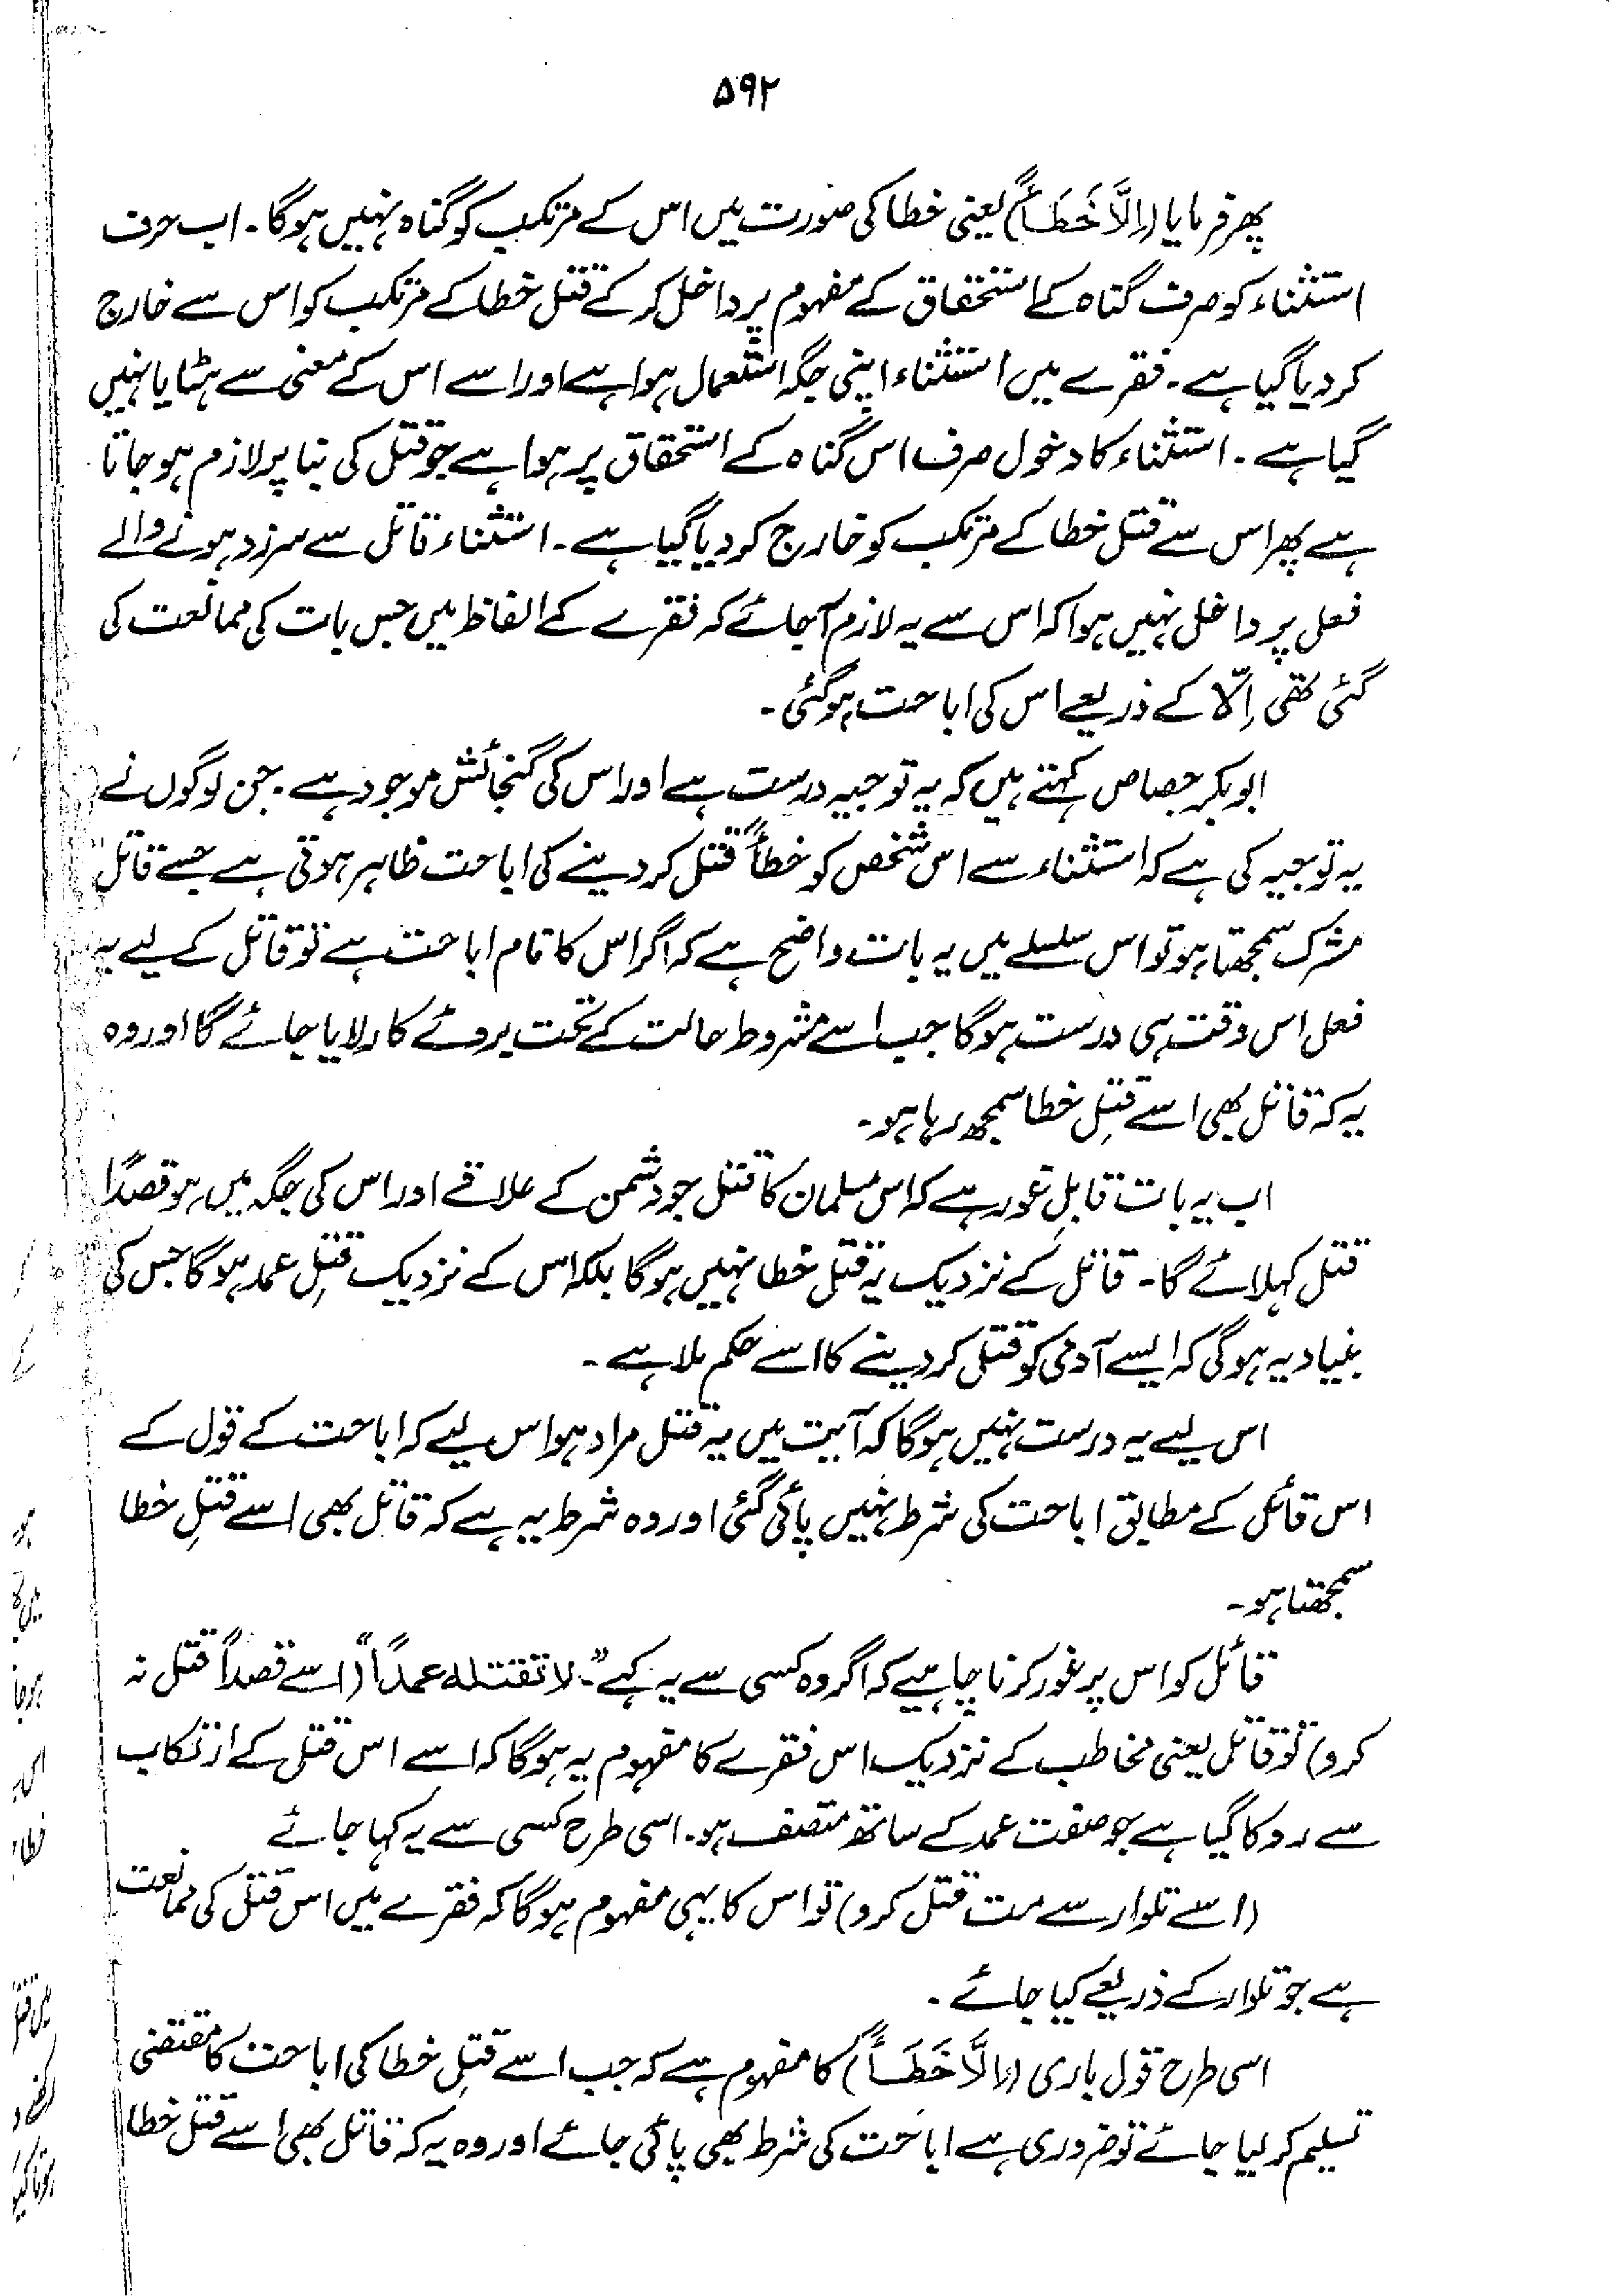 ۵۹۲
پھر فرمایا (اِلَّا خَطَأً) یعنی خطا کی صورت میں اس کے مرتکب کو گناہ نہیں ہوگا۔ اب حرف
استثناء کو صرف گناہ کے استحقاق کے مفہوم پر داخل کر کے قتل خطا کے مرتکب کو اس سے خارج
کر دیا گیا ہے۔ فقرے میں استثناء اپنی جگہ استعمال ہوا ہے اور اسے اس کے معنی سے ہٹایا نہیں
گیا ہے۔ استثناء کا دخول صرف اس گناہ کے استحقاق پر ہوا ہے جو قتل کی بنا پر لازم ہو جاتا
ہے پھر اس سے قتل خطا کے مرتکب کو خارج کر دیا گیا ہے۔ استثناء قاتل سے سرزد ہونے والے
فعل پر داخل نہیں ہوا کہ اس سے یہ لازم آ جائے کہ فقرے کے الفاظ میں جس بات کی ممانعت کی
گئی تھی اِلّا کے ذریعے اس کی اباحت ہو گئی۔
ابوبکر جصاص کہتے ہیں کہ یہ توجیہ درست ہے اور اس کی گنجائش موجود ہے۔ جن لوگوں نے
یہ توجیہ کی ہے کہ استثناء سے اس شخص کو خطأً قتل کر دینے کی اباحت ظاہر ہوتی ہے جسے قاتل
مشرک سمجھتا ہو تو اس سلسلے میں یہ بات واضح ہے کہ اگر اس کا نام اباحت ہے تو قاتل کے لیے یہ
فعل اس وقت ہی درست ہوگا جب اسے مشروط حالت کے تحت بروئے کار لایا جائے گا اور وہ
یہ کہ قاتل بھی اسے قتلِ خطا سمجھ رہا ہو۔
اب یہ بات قابلِ غور ہے کہ اس مسلمان کا قتل جو دشمن کے علاقے اور اس کی جگہ میں ہو قصداً
قتل کہلائے گا۔ قاتل کے نزدیک یہ قتل خطا نہیں ہوگا بلکہ اس کے نزدیک قتلِ عمد ہوگا جس کی
بنیاد یہ ہوگی کہ ایسے آدمی کو قتل کر دینے کا اسے حکم ملا ہے۔
اس لیے یہ درست نہیں ہوگا کہ آیت میں یہ قتل مراد ہو اس لیے کہ اباحت کے قول کے
اس قائل کے مطابق اباحت کی شرط نہیں پائی گئی اور وہ شرط یہ ہے کہ قاتل بھی اسے قتلِ خطا
سمجھتا ہو۔
قائل کو اس پر غور کرنا چاہیے کہ اگر وہ کسی سے یہ کہے ”۔ لا تقتله عمداً“ (اسے قصداً قتل نہ
کرو) تو قاتل یعنی مخاطب کے نزدیک اس فقرے کا مفہوم یہ ہوگا کہ اسے اس قتل کے ارتکاب
سے روکا گیا ہے جو صفت عمد کے ساتھ متصف ہو۔ اسی طرح کسی سے یہ کہا جائے
(اسے تلوار سے مت قتل کرو) تو اس کا یہی مفہوم ہوگا کہ فقرے میں اس قتل کی ممانعت
ہے جو تلوار کے ذریعے کیا جائے۔
اسی طرح قول باری (اِلَّا خَطَأً) کا مفہوم ہے کہ جب اسے قتلِ خطا کی اباحت کا مقتضی
تسلیم کر لیا جائے تو ضروری ہے اباحت کی شرط بھی پائی جائے اور وہ یہ کہ قاتل بھی اسے قتل خطا